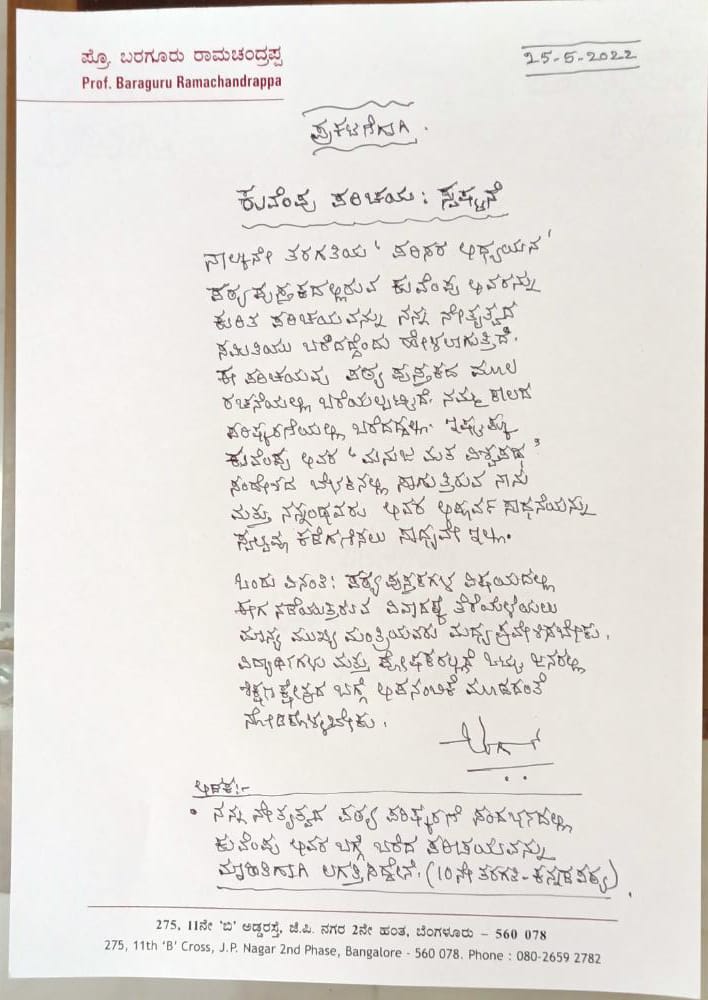 ಪ್ರೊ. ಬರಗೂರು ರಾಮಚಂದ್ರಪ್ಪ
Prof. Baraguru Ramachandrappa
25-5-2022
ಪ್ರಕಟಣೆಗಾಗಿ.
ಕುವೆಂಪು ಪರಿಚಯ: ಸ್ಪಷ್ಟನೆ
ನಾಲ್ಕನೇ ತರಗತಿಯ ' ಪರಿಸರ ಅಧ್ಯಯನ '
ಪಠ್ಯಪುಸ್ತಕದಲ್ಲಿರುವ ಕುವೆಂಪು ಅವರನ್ನು
ಕುರಿತ ಪರಿಚಯವನ್ನು ನನ್ನ ನೇತೃತ್ವದ
ಸಮಿತಿಯು ಬರೆದದ್ದೆಂದು ಹೇಳಲಾಗುತ್ತಿದೆ.
ಈ ಪರಿಚಯವು ಪಠ್ಯ ಪುಸ್ತಕದ ಮೂಲ
ರಚನೆಯಲ್ಲಿ ಬರೆಯಲ್ಪಟ್ಟಿದೆ. ನಮ್ಮ ಕಾಲದ
ಪರಿಷ್ಕರಣೆಯಲ್ಲಿ ಬರೆದದ್ದಲ್ಲ. ಇಷ್ಟಕ್ಕೂ
ಕುವೆಂಪು ಅವರ ' ಮನುಜ ಮತ ವಿಶ್ವಪಥ '
ಸಂದೇಶದ ಬೆಳಕಿನಲ್ಲಿ ಸಾಗುತ್ತಿರುವ ನಾನು
ಮತ್ತು ನನ್ನಂಥವರು ಅವರ ಅಪೂರ್ವ ಸಾಧನೆಯನ್ನು
ಸ್ವಲ್ಪವೂ ಕಡೆಗಣಿಸಲು ಸಾಧ್ಯವೇ ಇಲ್ಲ.
ಒಂದು ವಿನಂತಿ: ಪಠ್ಯಪುಸ್ತಕಗಳ ವಿಷಯದಲ್ಲಿ
ಈಗ ನಡೆಯುತ್ತಿರುವ ವಿವಾದಕ್ಕೆ ತೆರೆಯೆಳೆಯಲು
ಮಾನ್ಯ ಮುಖ್ಯ ಮಂತ್ರಿಯವರು ಮಧ್ಯಪ್ರವೇಶಿಸಬೇಕು.
ವಿದ್ಯಾರ್ಥಿಗಳು ಮತ್ತು ಪೋಷಕರಲ್ಲದೆ ಒಟ್ಟು ಜನರಲ್ಲಿ
ಶಿಕ್ಷಣ ಕ್ಷೇತ್ರದ ಬಗ್ಗೆ ಅಪನಂಬಿಕೆ ಮೂಡದಂತೆ
ನೋಡಿಕೊಳ್ಳಬೇಕು.
ಅಡಕ:-
• ನನ್ನ ನೇತೃತ್ವದ ಪಠ್ಯ ಪರಿಷ್ಕರಣೆ ಸಂದರ್ಭದಲ್ಲಿ
ಕುವೆಂಪು ಅವರ ಬಗ್ಗೆ ಬರೆದ ಪರಿಚಯವನ್ನು
ಮಾಹಿತಿಗಾಗಿ ಲಗತ್ತಿಸಿದ್ದೇನೆ. (10ನೇ ತರಗತಿ-ಕನ್ನಡ ಪಠ್ಯ).
275, 11ನೇ 'ಬಿ' ಅಡ್ಡರಸ್ತೆ, ಜೆ.ಪಿ. ನಗರ 2ನೇ ಹಂತ, ಬೆಂಗಳೂರು – 560 078
275, 11th 'B' Cross, J.P. Nagar 2nd Phase, Bangalore - 560 078. Phone : 080-2659 2782